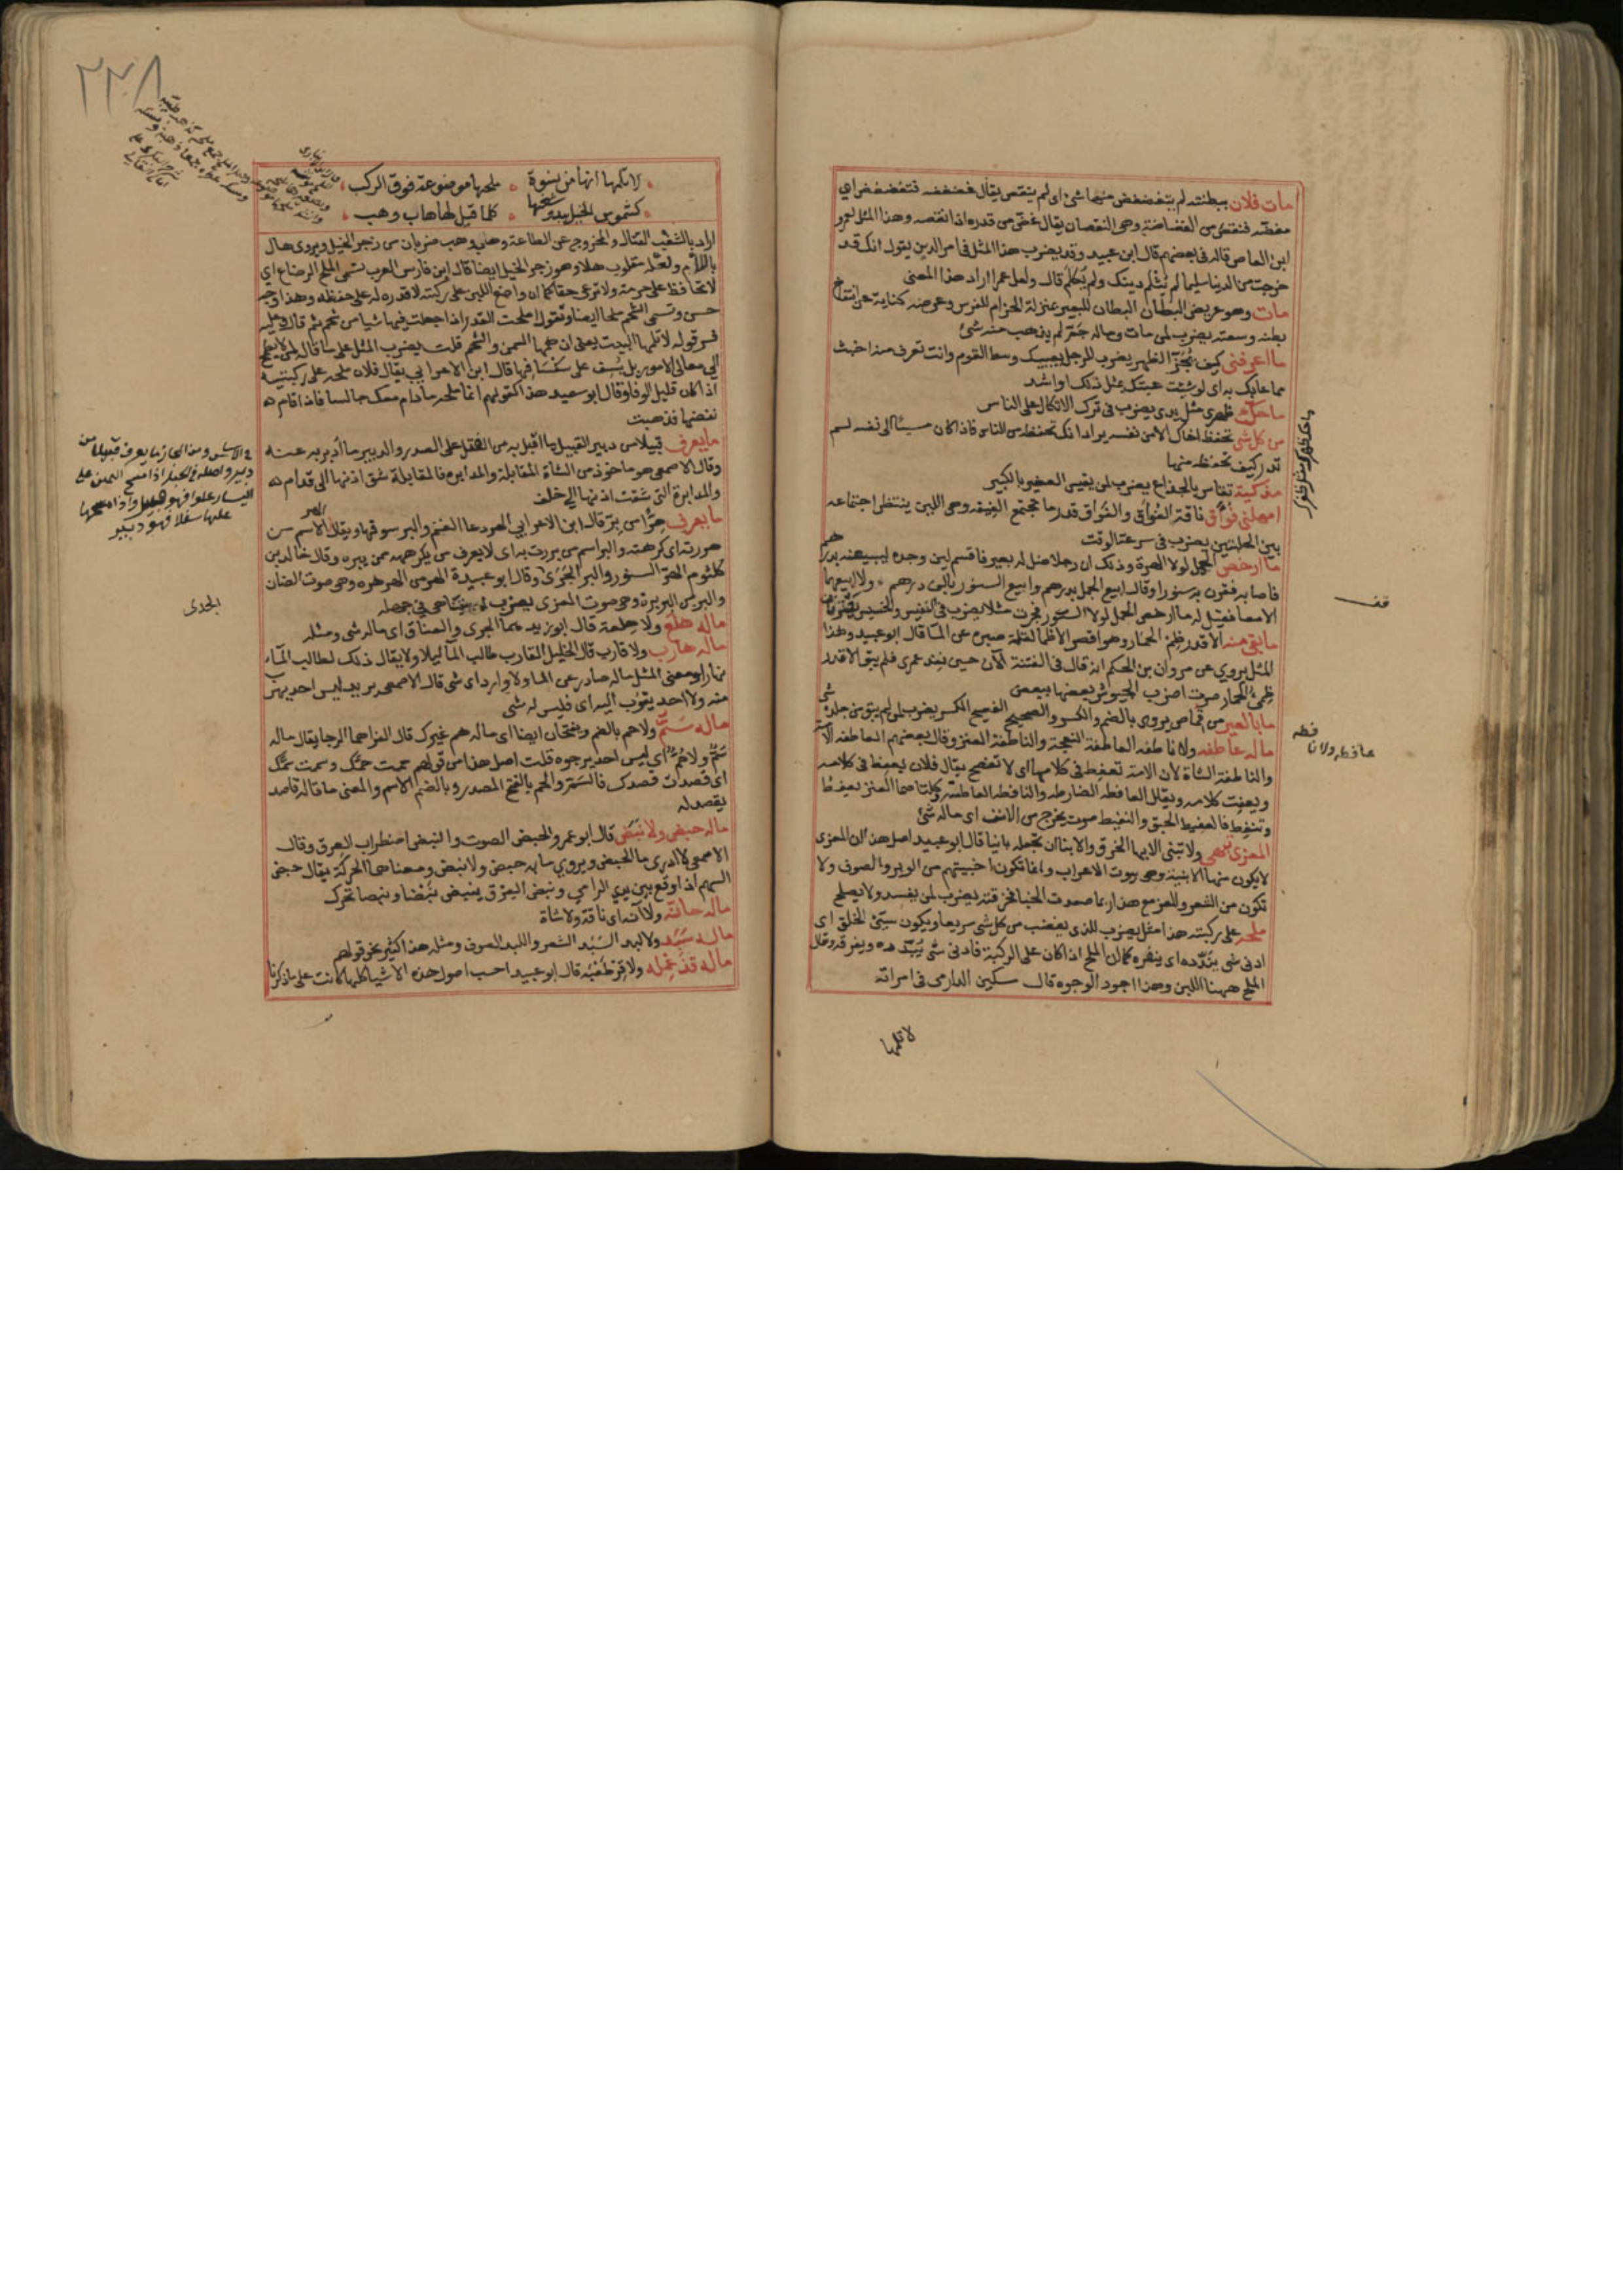 مات فلان ببطنته لم يتغضغض منها شئ اى لم ينتقص يقال غضغضه فتغضغض اي
نقصته فنقص من الغضاضة وهى النقصان يقال غض من قدره اذا نقصه وهذا المثل لعمرو
ابن العاص قاله فى بعضهم قال ابو عبيد وقد يضرب هذا المثل فى امر الدين يقول انك قد
خرجت من الدنيا سليما لم تثلم دينك ولم تكلم قال ولعل عمرا اراد هذا المعنى
مات وهو عريض البطان البطان للبعير بمنزلة الحزام للفرس وعرضه كناية عن انتفاخ
بطنه وسعته يضرب لمن مات وماله جم لم يذهب منه شئ
ما اعرفنى كيف يجز الظهر يضرب للرجل يعيبك وسط القوم وانت تعرف منه اخبث
مما عابك به اى لو شئت عبتك بمثل ذلك او اشد
ما حك ظهرى مثل يدى يضرب فى ترك الاتكال على الناس
من كل شى تحفظ اخاك الا من نفسه يراد انك تحفظه من الناس فاذا كان مسيئا الى نفسه لم
تدر كيف تحفظه منها
مذكية تقاس بالجذاع يضرب لمن يقيس الصغير بالكبير
امهلنى فواق ناقة الفواق والفواق قدر ما تجتمع الفيقة وهى اللبن ينتظر اجتماعه
بين الحلبتين يضرب فى سرعة الوقت
ما ارخص الجمل لولا الهرة وذلك ان رجلا ضل له بعير فاقسم لئن وجده ليبيعنه بدرهم
فاصابه فقرن به سنورا وقال ابيع الجمل بدرهم وابيع السنور بالف درهم ولا ابيعهما
الا معا فقيل له ما ارخص الجمل لولا السنور فجرت مثلا يضرب فى النفيس والخسيس يقترنان
ما بقى منه الا قدر ظمئ الحمار وهو اقصر الاظماء لقلة صبره عن الماء قال ابو عبيد وهذا
المثل يروي عن مروان بن الحكم انه قال فى الفتنة الآن حين نفد عمرى فلم يبق الا قدر
ظمئ الحمار صرت اضرب الجيوش بعضها ببعض
ما بالعير من قماص يروى بالضم والكسر والصحيح الفصيح الكسر يضرب لمن لم يبق من جلده شى
ماله عافطه ولا نافطه العافطة النعجة والنافطة العنز وقال بعضهم العافطة الامة
والنافطة الشاة لان الامة تعفط فى كلامها اى لا تفصح يقال فلان يعفط فى كلامه
ويعفت كلامه ويقال العافطه الضارطه والنافطه العاطسة وكلتاهما العنز تعفط
وتنفط فالعفيط الحبق والنفيط صوت يخرج من الانف اى ماله شئ
المعزى تبهى ولا تبنى الابهاء الخرق والابناء ان تجعله بانيا قال ابو عبيد اصل هذا ان المعزى
لا يكون منها الابنية وهى بيوت الاعراب وانما تكون اخبيتهم من الوبر والصوف ولا
تكون من الشعر والمعز مع هذا ربما صعدت الخبا فخرقته يضرب لمن يفسد ولا يصلح
ملحه على ركبته هذا مثل يضرب للذى يغضب من كل شى سريعا ويكون سيئ الخلق اى
ادنى شى يبدده اى ينفره كما ان الملح اذا كان على الركبة فادنى شى يبدده ويفرقه وقال
الملح ههنا اللبن وهذا اجود الوجوه قال مسكين الدارمى فى امراته
لا تلمها
ما حك ظهرك مثل ظفرك
قف
عافطه ولا نافطه
٢٢٨
لا تلمها انها من نسوة ملحها موضوعة فوق الركب
كشموس الخيل يبدو شغبها كلما قيل لها هاب وهب
اراد بالشغب القتال والخروج عن الطاعة وهاب وهب ضربان من زجر الخيل ويروى هال
باللام ولعله مقلوب هلا وهو زجر الخيل ايضا قال ابن فارس العرب تسمى الملح الرضاع اي
لا تحافظ على حرمة ولا ترعى حقا كما ان واضع اللبن على ركبته لا قدره له على حفظه وهذا وجه
حسن وتسمى الشحم ملحا ايضا وتقول املحت القدر اذا جعلت فيها شيا من شحم ثم قال وعليه
فسر قوله لا تلمها البيت يعنى ان همها السمن والشحم قلت يضرب المثل على ما قال لمن لا يطمح
الى معالى الامور بل يسف على سفسافها قال ابن الاعرابى يقال فلان ملحه على ركبتيه
اذا كان قليل الوفا وقال ابو سعيد هذا كقولهم انما ملحه ما دام معك جالسا فاذا قام
نفضها فذهبت
ما يعرف قبيلا من دبير القبيل ما اقبل به من الفتل على الصدر والدبير ما ادبر به عنه
وقال الاصمعى هو ماخوذ من الشاة المقابلة والمدابره فالمقابلة شق اذنها الى قدام
والمدابرة التى شقت اذنها الى خلف
ما يعرف هرا من بر قال ابن الاعرابي الهر دعاء الغنم والبر سوقها ويقال الهر الاسم من
هررته اى كرهته والبر اسم من بررت به اى لا يعرف من يكرهه ممن يبره وقال خالد بن
كلثوم الهر السنور والبر الجرذ وقال ابو عبيدة الهر من الهرهره وهى صوت الضان
والبر من البربرة وهى صوت المعزى يضرب لمن يتناهى فى جهله
ماله هلع ولا هلعة قال ابو زيد هما الجدى والعناق اى ماله شى ومثله
ماله هارب ولا قارب قال الخليل القارب طالب الماء ليلا ولا يقال ذلك لطالب الماء
نهارا ومعنى المثل ماله صادر عن الماء ولا وارد اى شى قال الاصمعى يريد ليس احد يهرب
منه ولا احد يقرب اليه اى فليس له شى
ماله سم ولا حم بالضم ويفتحان ايضا اى ماله هم غيرك قال الفرا هما الرجا يقال ماله
سم ولا حم اي ليس احد يرجوه قلت اصل هذا من قولهم حممت حمك وسممت سمك
اى قصدت قصدك فالسم والحم بالفتح المصدر وبالضم الاسم والمعنى ماله قاصد
يقصد له
ماله حبض ولا نبض قال ابو عمرو الحبض الصوت والنبض اضطراب العرق وقال
الاصمعى لا ادرى ما الحبض ويروي ما به حبض ولا نبض ومعناهما الحركة يقال حبض
السهم اذا وقع بين يدي الرامي ونبض العرق ينبض نبضا ونبضا تحرك
ماله حانة ولا آنة اى ناقة ولا شاة
ماله سبد ولا لبد السبد الشعر واللبد الصوف ومثله هذا كثير نحو قولهم
ماله قذعمله ولا قرطعبة قال ابو عبيد احسب اصول هذه الاشيا كلها كانت على ما ذكرنا
فى الاساس ومن المجاز ما يعرف قبيلا من
دبير واصله فى الحبل اذا مسح اليمين على
اليسار علوا فهو قبيل واذا مسحها
عليها سفلا فهو دبير
الجدى